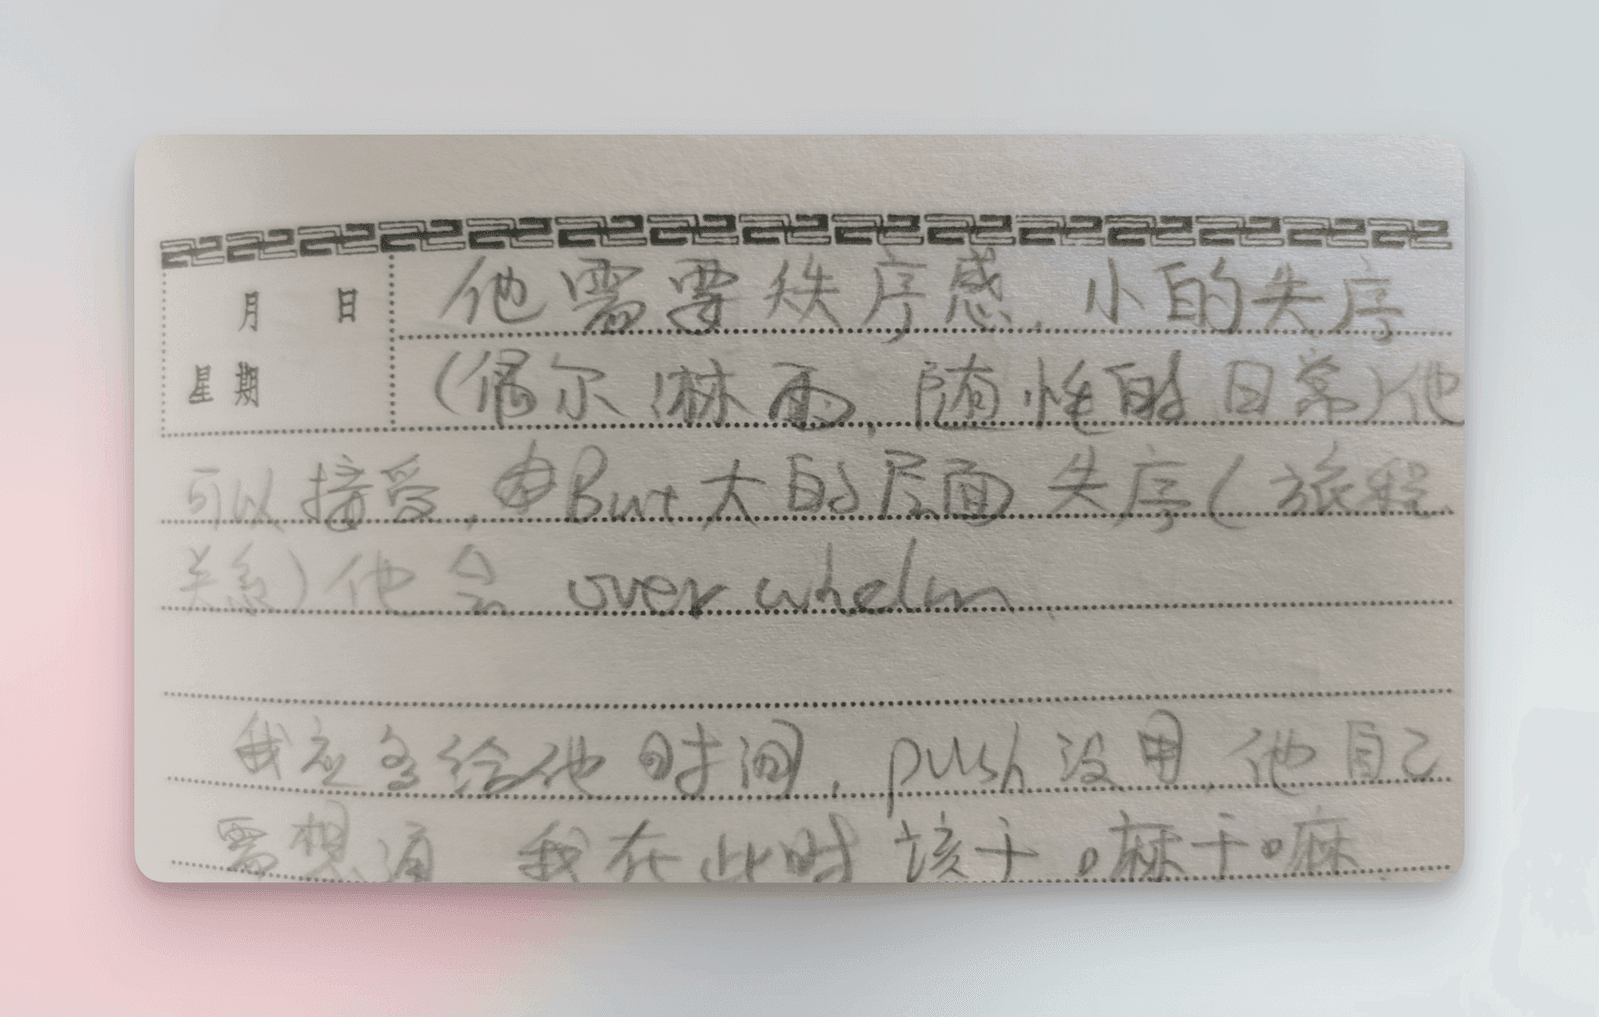 月 日
他需要秩序感，小的失序
星期
(偶尔淋雨，随性的日常)他
可以接受，But大的层面失序(旅程、
关系)他会 over whelm.
我应多给他时间，push没用，他自己
需想通 我在此时该干嘛干嘛.